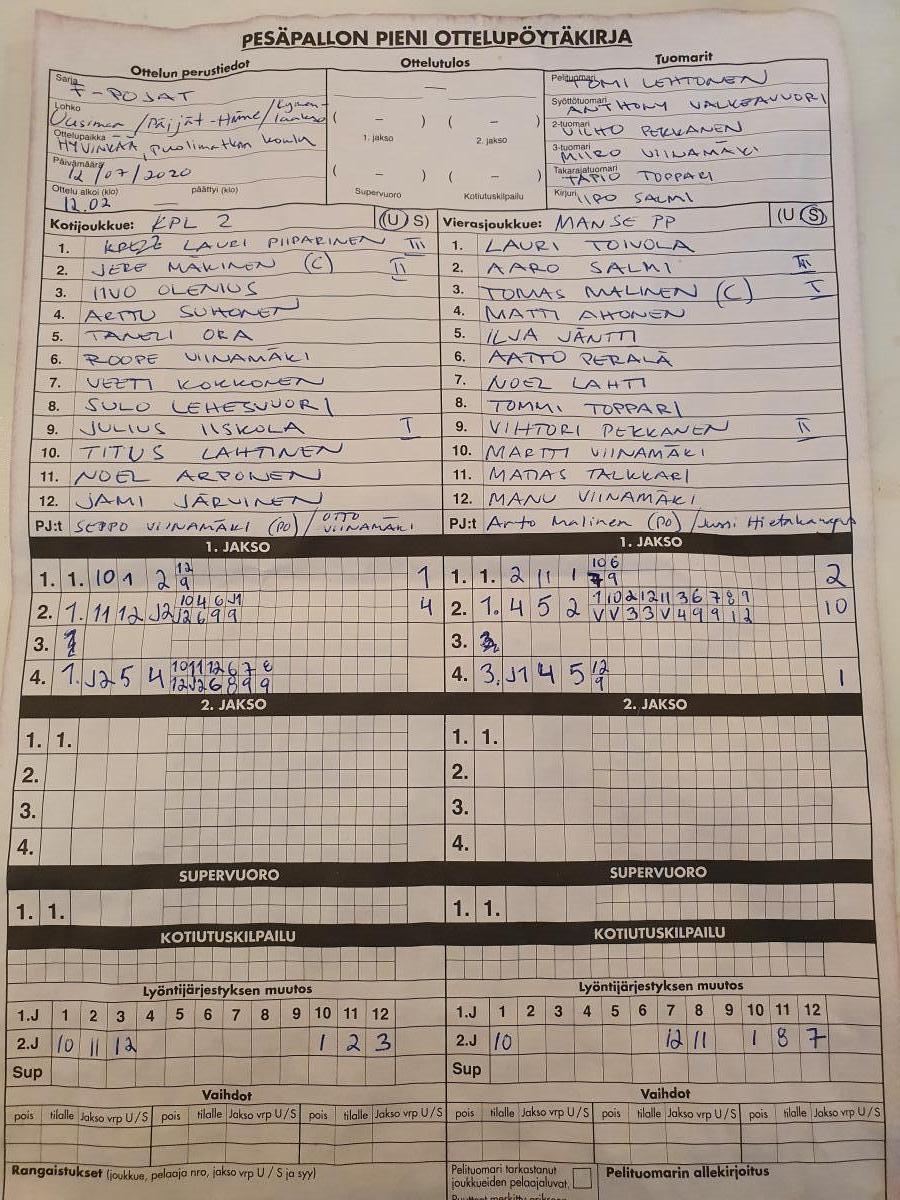 PESÄPALLON PIENI OTTELUPÖYTÄKIRJA
Ottelun perustiedot Ottelutulos Tuomarit
Sarja F-POJAT
Lohko Uusimaa / Päijät-Häme / Kymen-laakso
Ottelupaikka HYVINKÄÄ, puolimatkan koulu
Päivämäärä 12/07/2020
Ottelu alkoi (klo) 12.02 päättyi (klo) —
—
( – ) ( – )
1. jakso 2. jakso
( – ) ( – )
Supervuoro Kotiutuskilpailu
Pelituomari TOMI LEHTONEN
Syöttötuomari ANTHONY VALKEAVUORI
2-tuomari VILHO PEKKANEN
3-tuomari MIIRO VIINAMÄKI
Takarajatuomari TAPIO TOPPARI
Kirjuri IIPO SALMI
Kotijoukkue: KPL 2 (U S)
1. LAURI PIIPARINEN III
2. JERE MÄKINEN (C) II
3. IIVO OLENIUS
4. ARTTU SUHONEN
5. TANELI ORA
6. ROOPE VIINAMÄKI
7. VEETI KOKKONEN
8. SULO LEHESVUORI
9. JULIUS IISKOLA I
10. TITUS LAHTINEN
11. NOEL ARPONEN
12. JAMI JÄRVINEN
PJ:t SEPPO VIINAMÄKI (PO) / OTTO VIINAMÄKI
Vierasjoukkue: MANSE PP (U S)
1. LAURI TOIVOLA
2. AARO SALMI III
3. TOMAS MALINEN (C) I
4. MATTI AHONEN
5. ILJA JÄNTTI
6. AATTO PERÄLÄ
7. NOEL LAHTI
8. TOMMI TOPPARI
9. VIHTORI PEKKANEN II
10. MARTTI VIINAMÄKI
11. MATIAS TALKKARI
12. MANU VIINAMÄKI
PJ:t Arto Malinen (PO) / Jussi Hietakangas
1. JAKSO 1. JAKSO
1. 1. 10 1 2 12 9 1
2. 1. 11 12 J2 10 4 6 J1 J2 6 9 9 4
3.
4. 1. J2 5 4 10 11 12 6 7 8 12 J2 6 8 9 9
1. 1. 2 11 1 10 6 7 9 2
2. 1. 4 5 2 1 10 2 12 11 3 6 7 8 9 V V 3 3 V 4 9 9 1 2 10
3.
4. 3. J1 4 5 12 9 1
2. JAKSO 2. JAKSO
1. 1. 1. 1.
2. 2.
3. 3.
4. 4.
SUPERVUORO SUPERVUORO
1. 1. 1. 1.
KOTIUTUSKILPAILU KOTIUTUSKILPAILU
Lyöntijärjestyksen muutos Lyöntijärjestyksen muutos
1.J 1 2 3 4 5 6 7 8 9 10 11 12 1.J 1 2 3 4 5 6 7 8 9 10 11 12
2.J 10 11 12 1 2 3 2.J 10 12 11 1 8 7
Sup Sup
Vaihdot Vaihdot
pois tilalle Jakso vrp U / S pois tilalle Jakso vrp U / S pois tilalle Jakso vrp U / S pois tilalle Jakso vrp U / S pois tilalle Jakso vrp U / S pois tilalle Jakso vrp U / S
Rangaistukset (joukkue, pelaaja nro, jakso vrp U / S ja syy)
Pelituomari tarkastanut
joukkueiden pelaajaluvat.
Pelituomarin allekirjoitus